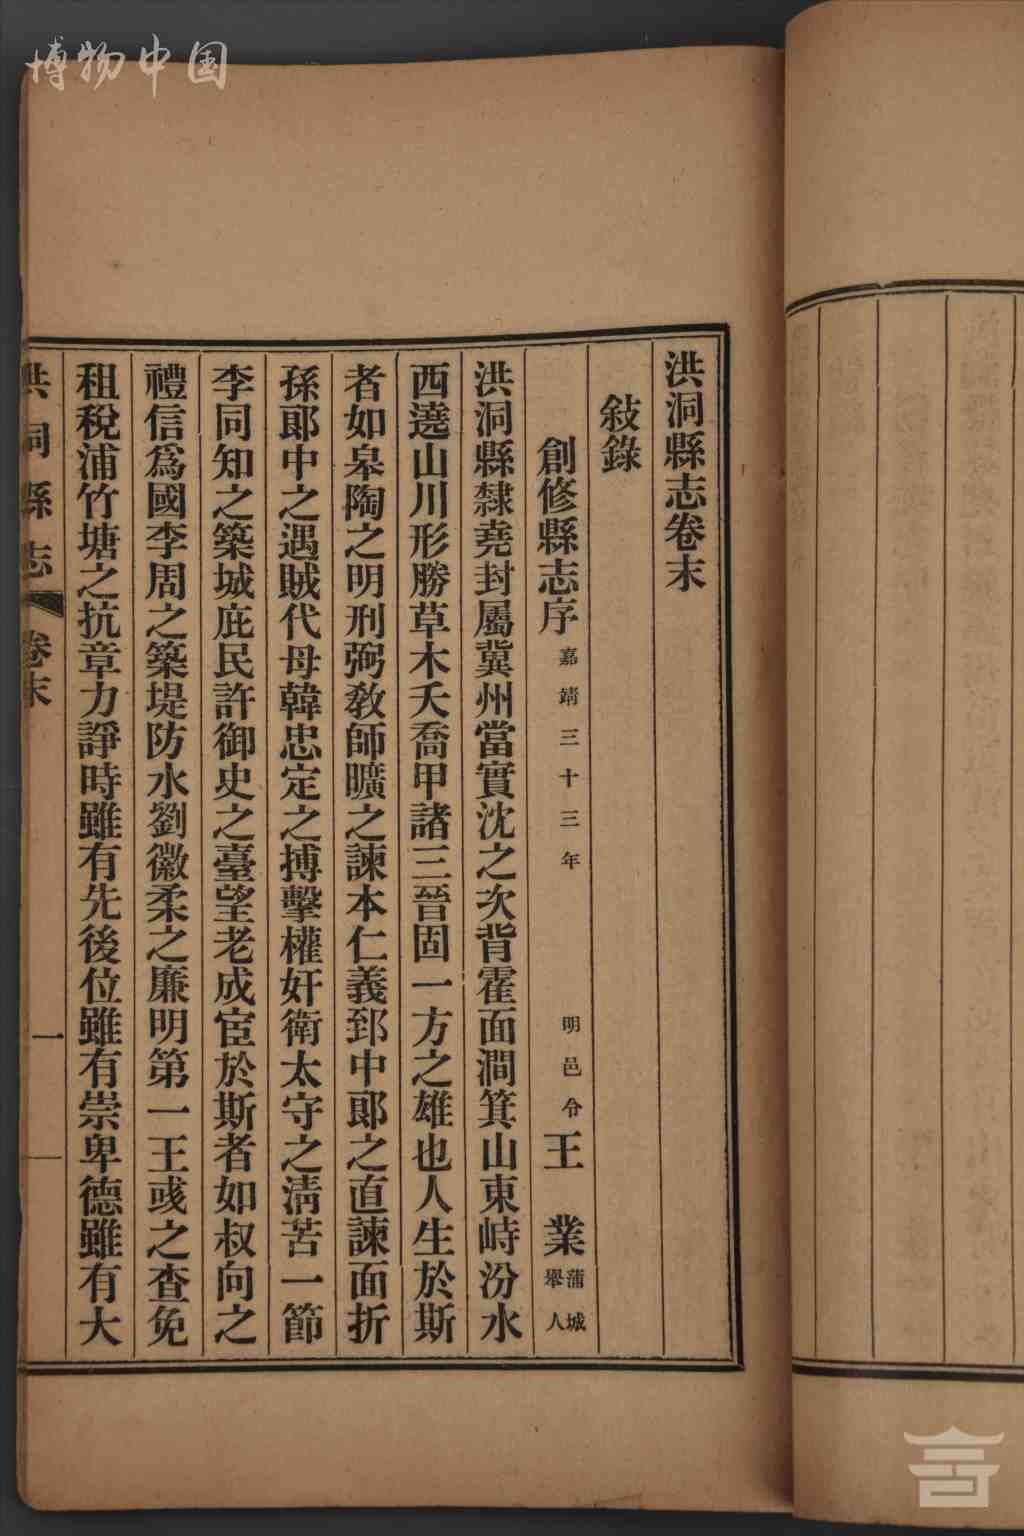 博物中国
洪洞縣志卷末
敍錄
創修縣志序 嘉靖三十三年 明邑令 王業 蒲城舉人
洪洞縣隸堯封屬冀州當實沈之次背霍面澗箕山東峙汾水
西遶山川形勝草木夭喬甲諸三晉固一方之雄也人生於斯
者如皋陶之明刑弼敎師曠之諫本仁義郅中郞之直諫面折
孫郞中之遇賊代母韓忠定之搏擊權奸衛太守之淸苦一節
李同知之築城庇民許御史之臺望老成宦於斯者如叔向之
禮信爲國李周之築堤防水劉徽柔之廉明第一王彧之查免
租稅浦竹塘之抗章力諍時雖有先後位雖有崇卑德雖有大
洪洞縣志 卷末 一